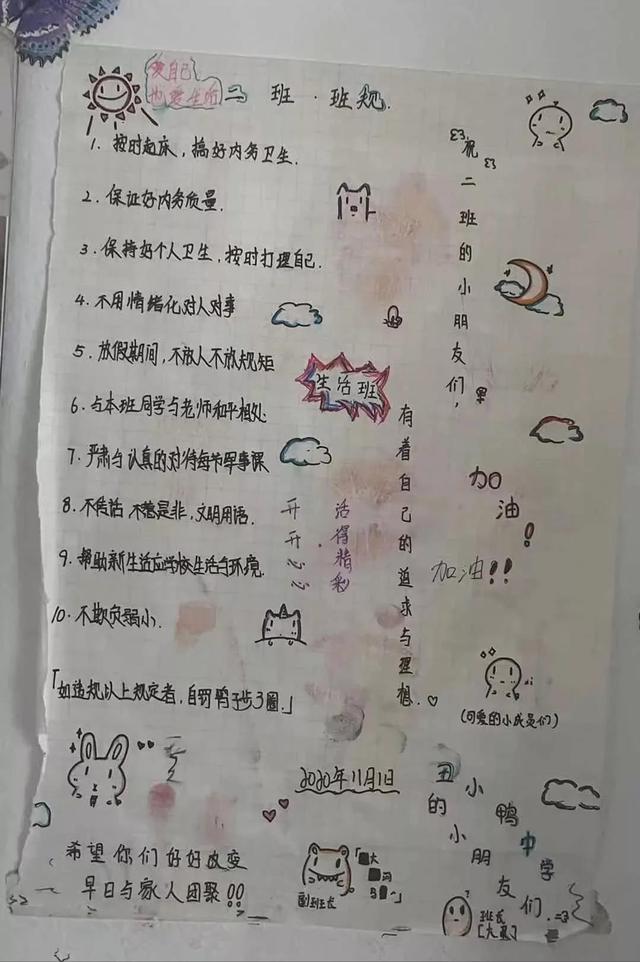 爱自己
也爱生活
二班·班规.
1. 按时起床，搞好内务卫生.
2. 保证好内务质量.
3. 保持好个人卫生，按时打理自己.
4. 不用情绪化对人对事
5. 放假期间，不放人不放规矩
6. 与本班同学与老师和平相处
7. 严肃与认真的对待每节军事课
8. 不传话 不惹是非，文明用语.
9. 帮助新生适应学校生活与环境.
10. 不欺负弱小.
「如违规以上规定者，自罚鸭子步3圈.」
生活班
开开心心
活得精彩
祝二班的小朋友们，
有着自己的追求与理想.
加油！
加油!!
(可爱的小成员们)
2020年11月1日
希望你们好好改变
早日与家人团聚!!
副班长
丑小鸭中学
的小朋友们.
班长